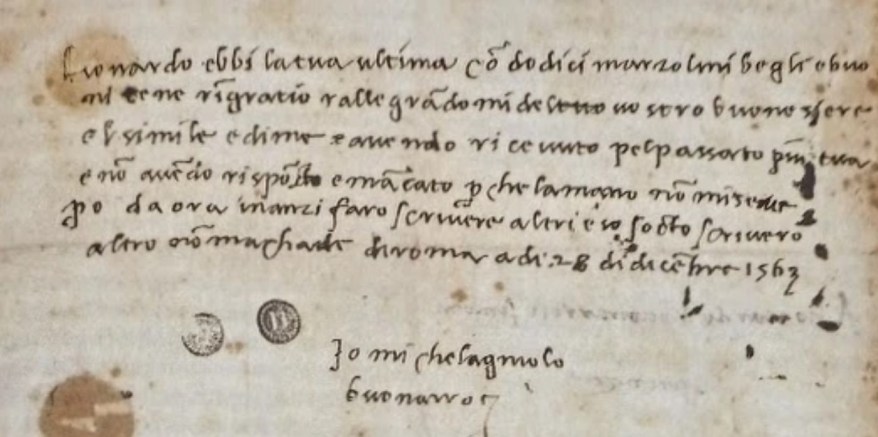 Lionardo ebbi la tua ultima cō dodici marzolini begli e buo
ni te ne rīgratio rallegrādomi del vostro buono essere
e 'l simile è di me e avendo ricevuto pel passato più tua
e nō avēdo risposto e mācato p che la mano nō mi serve
po da ora inanzi farò scrivere altri e io socto scriverò
altro nō machade di roma a di 28 di dicēbre 1563
Io michelagniolo
buonarroti